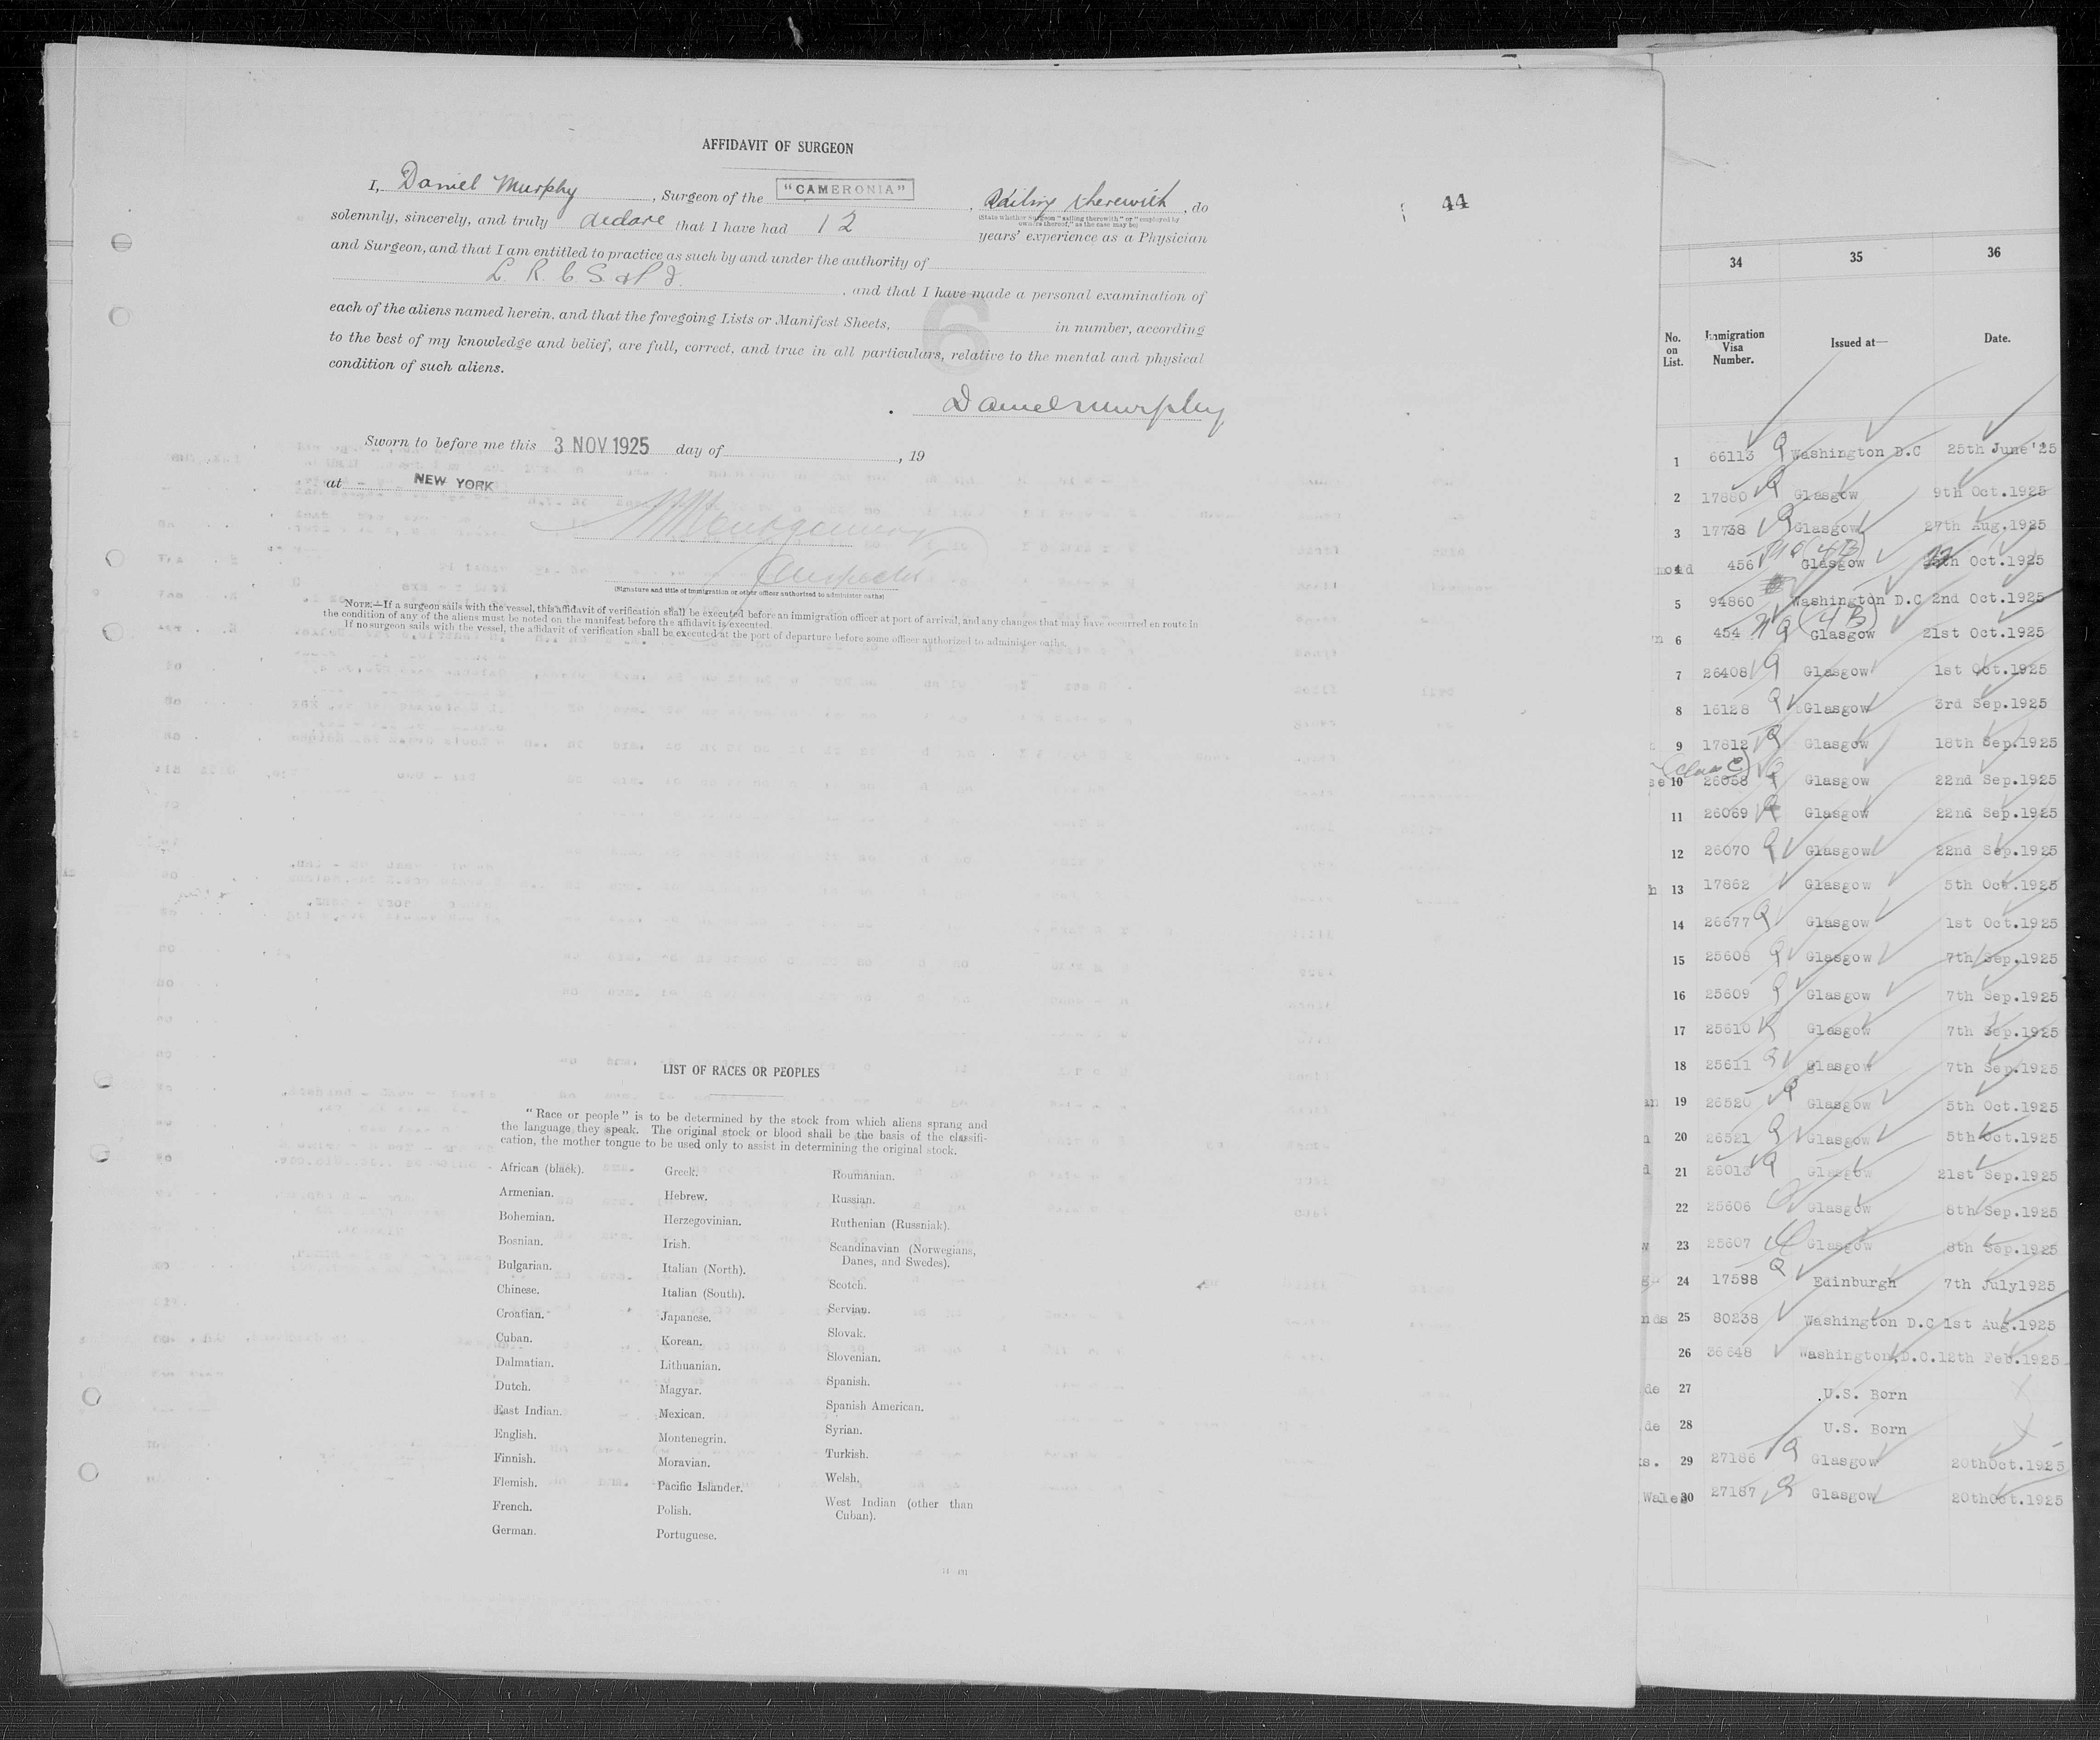 AFFIDAVIT OF SURGEON
I, Daniel Murphy , Surgeon of the "CAMERONIA" , Sailing therewith , do
(State whether Surgeon "sailing therewith" or "employed by
owners thereof," as the case may be)
solemnly, sincerely, and truly declare that I have had 12 years' experience as a Physician
and Surgeon, and that I am entitled to practice as such by and under the authority of
L. R. C. S. & P I. , and that I have made a personal examination of
each of the aliens named herein, and that the foregoing Lists or Manifest Sheets, in number, according
to the best of my knowledge and belief, are full, correct, and true in all particulars, relative to the mental and physical
condition of such aliens.
Daniel Murphy
Sworn to before me this 3 NOV 1925 day of , 19
at NEW YORK
Inspector
(Signature and title of immigration or other officer authorized to administer oaths)
NOTE.—If a surgeon sails with the vessel, this affidavit of verification shall be executed before an immigration officer at port of arrival, and any changes that may have occurred en route in
the condition of any of the aliens must be noted on the manifest before the affidavit is executed.
If no surgeon sails with the vessel, the affidavit of verification shall be executed at the port of departure before some officer authorized to administer oaths.
6
44
LIST OF RACES OR PEOPLES
"Race or people" is to be determined by the stock from which aliens sprang and
the language they speak. The original stock or blood shall be the basis of the classifi-
cation, the mother tongue to be used only to assist in determining the original stock.
African (black).
Armenian.
Bohemian.
Bosnian.
Bulgarian.
Chinese.
Croatian.
Cuban.
Dalmatian.
Dutch.
East Indian.
English.
Finnish.
Flemish.
French.
German.
Greek.
Hebrew.
Herzegovinian.
Irish.
Italian (North).
Italian (South).
Japanese.
Korean.
Lithuanian.
Magyar.
Mexican.
Montenegrin.
Moravian.
Pacific Islander.
Polish.
Portuguese.
Roumanian.
Russian.
Ruthenian (Russniak).
Scandinavian (Norwegians,
Danes, and Swedes).
Scotch.
Servian.
Slovak.
Slovenian.
Spanish.
Spanish American.
Syrian.
Turkish.
Welsh.
West Indian (other than
Cuban).
34 35 36
No. on List. Immigration Visa Number. Issued at— Date.
1 66113 Q Washington D.C 25th June'25
2 17880 Q Glasgow 9th Oct.1925
3 17738 Q Glasgow 27th Aug.1925
4 456 (4B) Glasgow Oct.1925
5 94860 Washington D.C 2nd Oct.1925
6 454 NQ (4B) Glasgow 21st Oct.1925
7 26408 Q Glasgow 1st Oct.1925
8 16128 Q Glasgow 3rd Sep.1925
9 17812 Q Glasgow 18th Sep.1925
(Class C)
10 26068 Q Glasgow 22nd Sep.1925
11 26069 Glasgow 22nd Sep.1925
12 26070 Q Glasgow 22nd Sep.1925
13 17862 Glasgow 5th Oct.1925
14 26677 Q Glasgow 1st Oct.1925
15 25608 Q Glasgow 7th Sep.1925
16 25609 Q Glasgow 7th Sep.1925
17 25610 Glasgow 7th Sep.1925
18 25611 Q Glasgow 7th Sep.1925
19 26520 Q Glasgow 5th Oct.1925
20 26521 Q Glasgow 5th Oct.1925
21 26013 Q Glasgow 21st Sep.1925
22 25606 Q Glasgow 8th Sep.1925
23 25607 Q Glasgow 8th Sep.1925
24 17588 Q Edinburgh 7th July1925
25 80238 Washington D.C 1st Aug.1925
26 36648 Washington,D.C. 12th Feb.1925
27 U.S. Born
28 U.S. Born
29 27186 Q Glasgow 20thOct.1925
Wales 30 27187 Q Glasgow 20thOct.1925